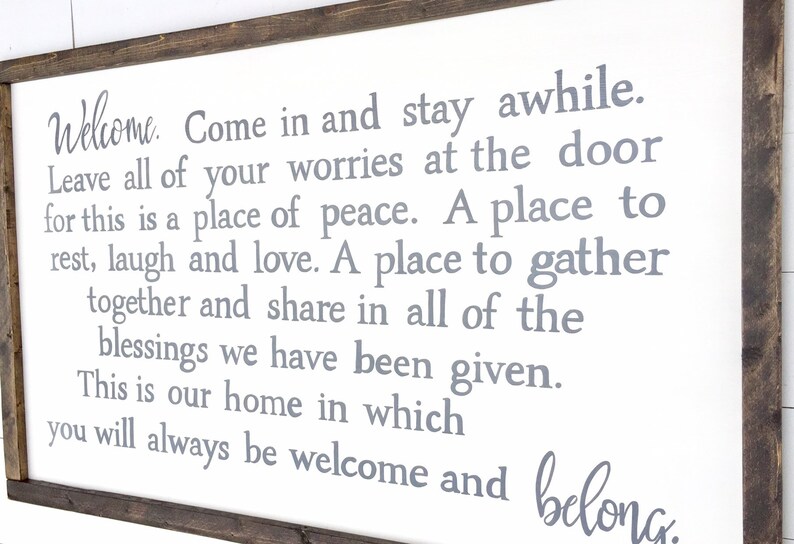 Welcome. Come in and stay awhile.
Leave all of your worries at the door
for this is a place of peace. A place to
rest, laugh and love. A place to gather
together and share in all of the
blessings we have been given.
This is our home in which
you will always be welcome and belong.